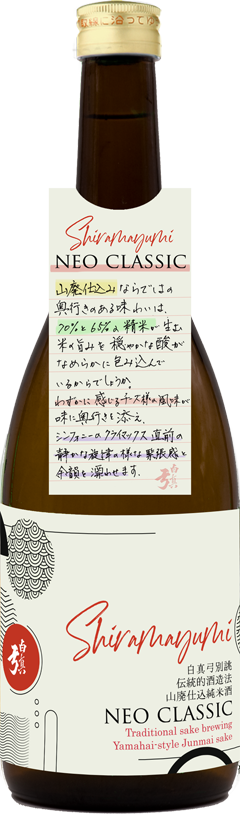 Shiramayumi
NEO CLASSIC
山廃仕込みならではの
奥行きのある味わいは、
70%と65%の精米が生む
米の旨みを穏やかな酸が
なめらかに包み込んで
いるからでしょうか。
わずかに感じるチーズ様の風味が
味に奥行きを添え、
シンフォニーのクライマックス直前の
静かな旋律の様な緊張感と
余韻を漂わせます。
白真弓
白真弓
Shiramayumi
白真弓別誂
伝統的酒造法
山廃仕込純米酒
NEO CLASSIC
Traditional sake brewing
Yamahai-style Junmai sake